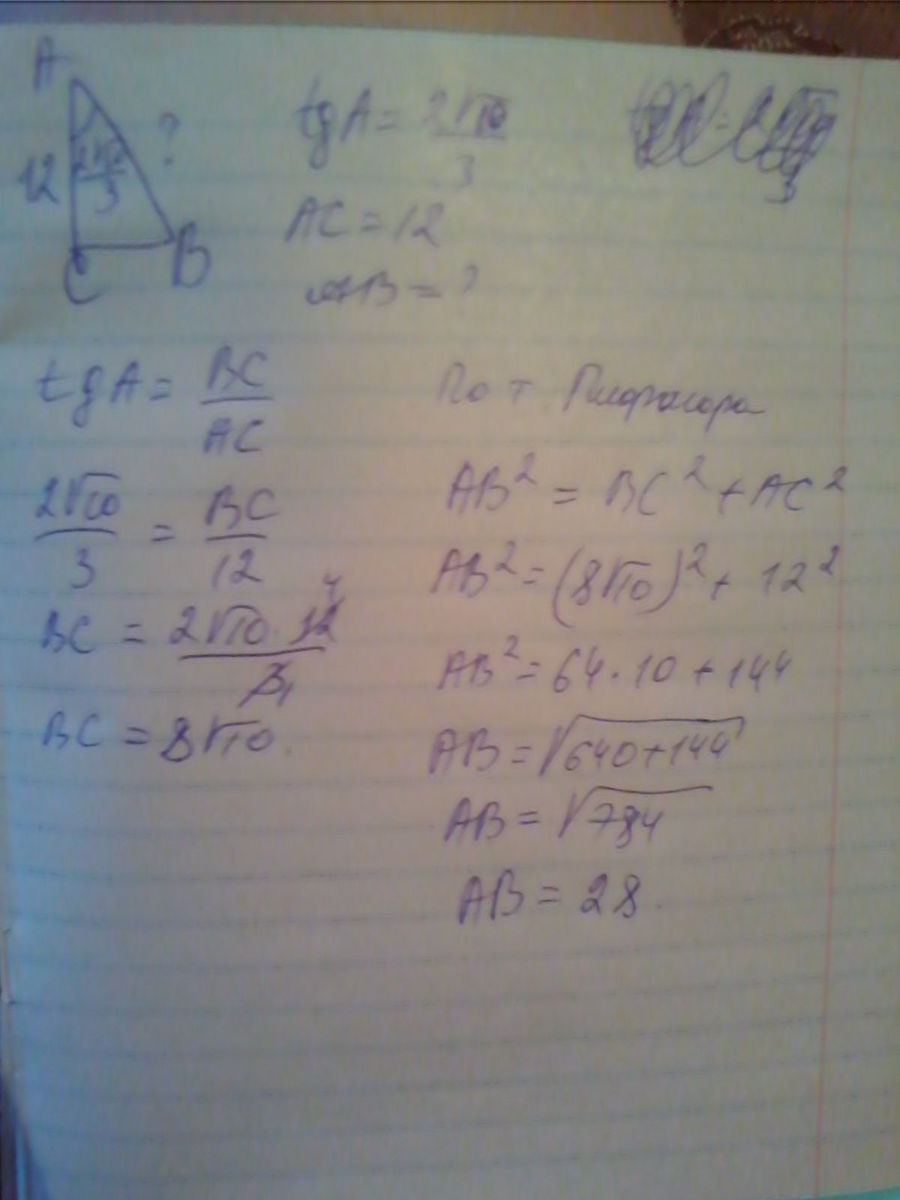 A
12
2√10/3
?
C
B
tgA = 2√10/3
AC = 12
AB = ?
tgA = BC/AC
2√10/3 = BC/12
BC = 2√10·12/3 4 1
BC = 8√10.
По т Пифагора
AB² = BC² + AC²
AB² = (8√10)² + 12²
AB² = 64·10 + 144
AB = √640+144
AB = √784
AB = 28.